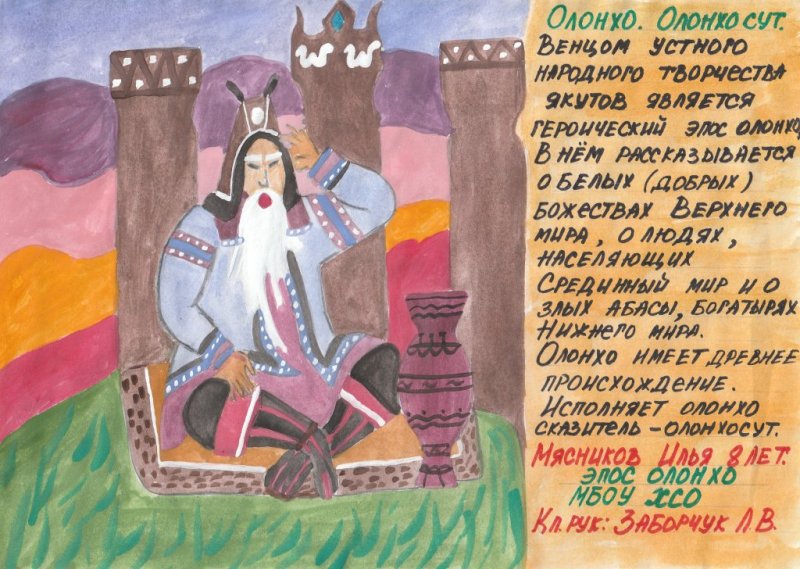 Олонхо. Олонхосут.
Венцом устного
народного творчества
якутов является
героический эпос олонхо,
В нём рассказывается
о белых (добрых)
божествах Верхнего
мира, о людях,
населяющих
Срединный мир и о
злых абасы, богатырях
Нижнего мира.
Олонхо имеет древнее
происхождение.
Исполняет олонхо
сказитель - олонхосут.
Мясников Илья 8 лет.
эпос олонхо
МБОУ ХСО
Кл.рук: Заборчук Л.В.